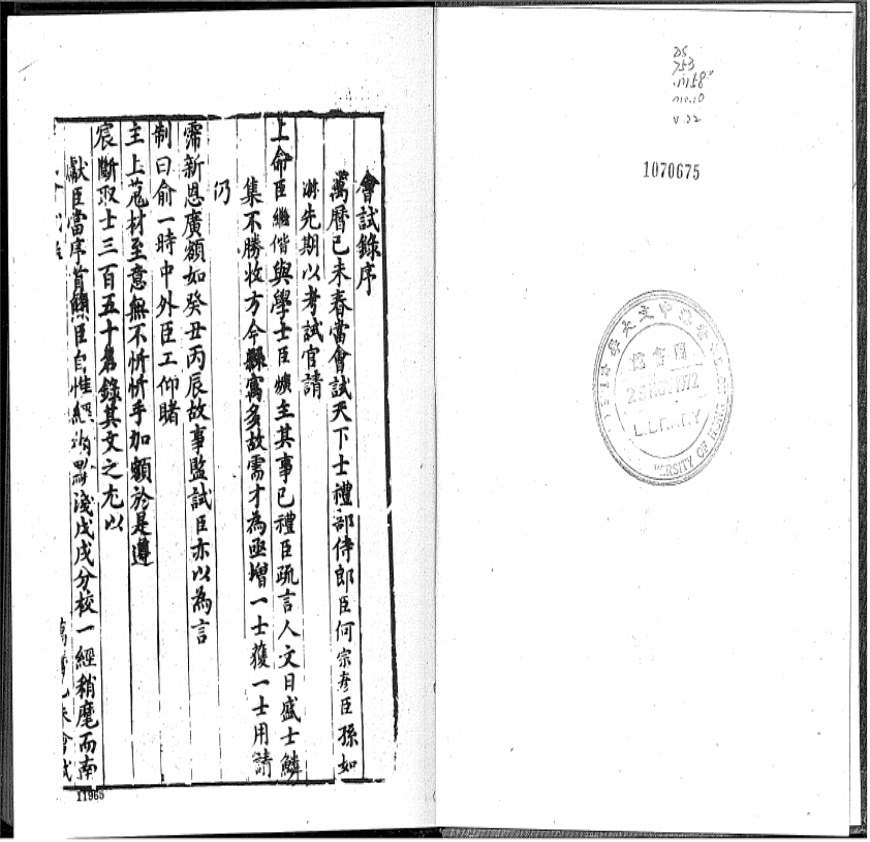 會試錄序
萬曆己未春當會試天下士禮部侍郎臣何宗彥臣孫如
游先期以考試官請
上命臣繼偕與學士臣爌主其事已禮臣疏言人文日盛士鱗
集不勝收方今縣寓多故需才為亟增一士獲一士用請
仍
霈新恩廣額如癸丑丙辰故事監試臣亦以為言
制曰俞一時中外臣工仰睹
主上蒐材至意無不忻忻手加額於是遵
宸斷取士三百五十名錄其文之尤以
獻臣當序首顧臣自惟經術黯淺戊戌分校一經稍麾而南
會試
11965
DS
753
.M58
no.10
v.22
1070675
圖書館
1972